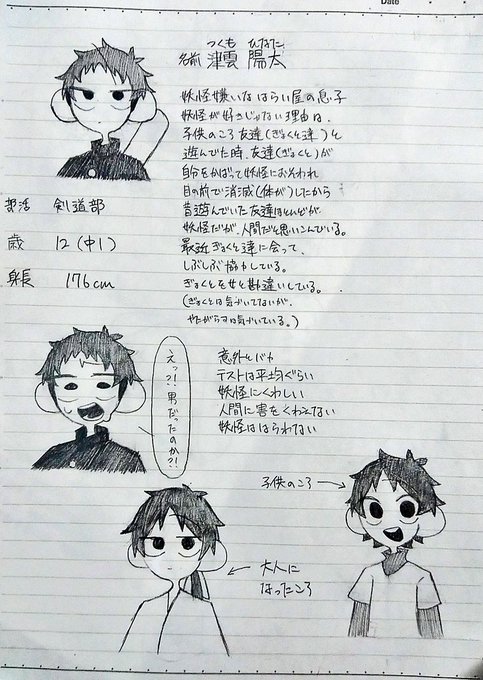 Date
つくも ひなた
名前 津雲 陽太
妖怪嫌いなはらい屋の息子
妖怪が好きじゃない理由は、
子供のころ友達(ぎょくと達)と
遊んでた時、友達(ぎょくと)が
自分をかばって妖怪におそわれ
目の前で消滅(体が)したから
昔遊んでいた友達はそれぞれが
妖怪だが、人間だと思いこんでいる。
最近ぎょくと達に会って、
しぶしぶ協力している。
ぎょくとを女と勘違いしている。
(ぎょくとは気づいてないが、
やたがらすは気づいている。)
部活 剣道部
歳 12(中1)
身長 176cm
えっ?!男だったのか?!
意外とバカ
テストは平均ぐらい
妖怪にくわしい
人間に害をくわえない
妖怪ははらわない
子供のころ→
←大人に
なったころ